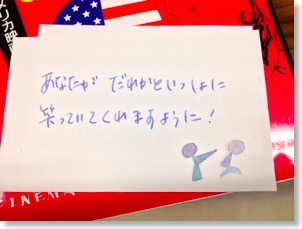 あなたが だれかといっしょに
笑っていてくれますように!
メリカ映画
INEMA